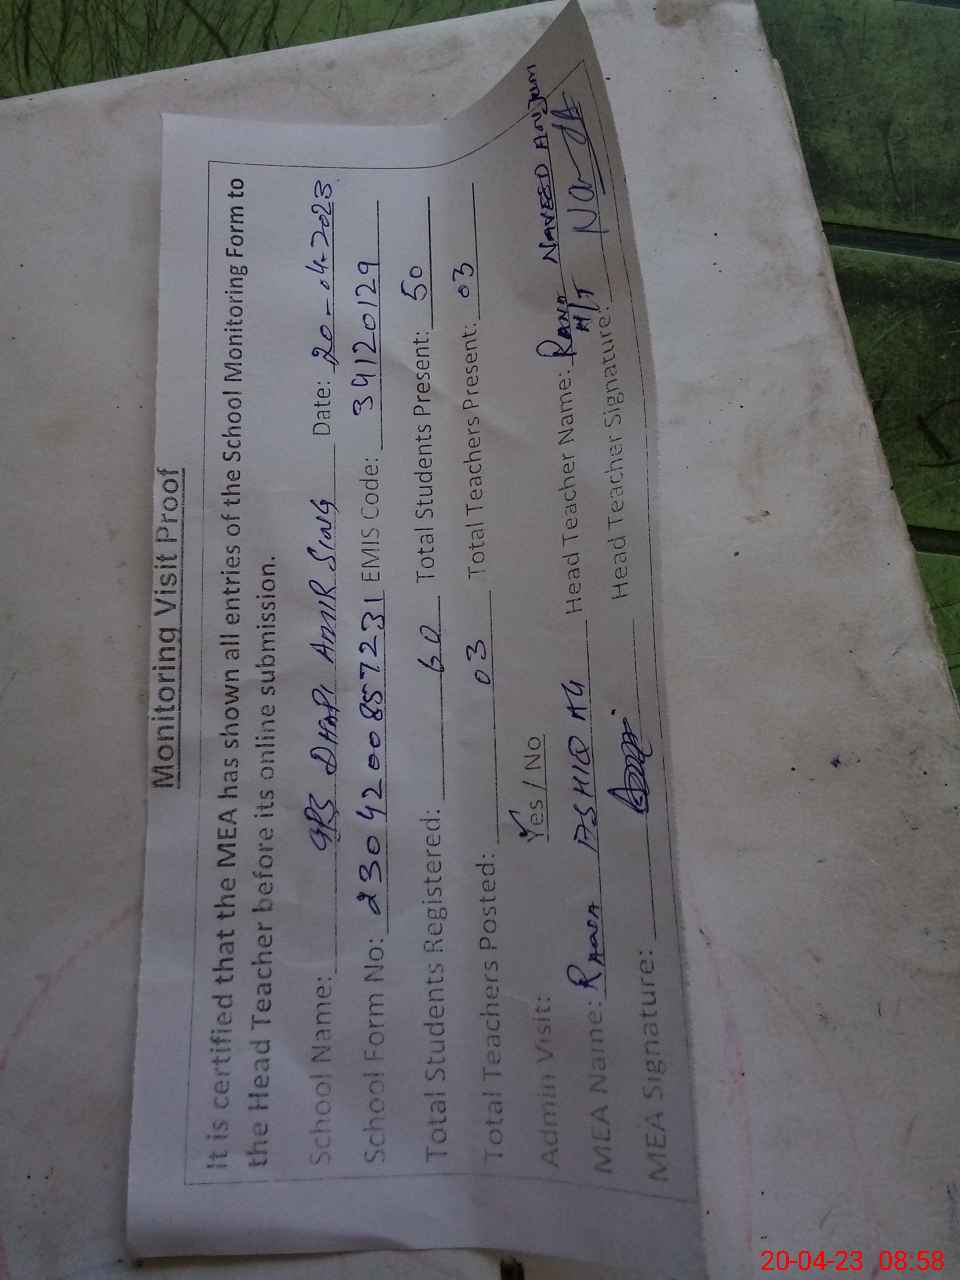 Monitoring Visit Proof
It is certified that the MEA has shown all entries of the School Monitoring Form to
the Head Teacher before its online submission.
School Name: GPS DHAPI AMIR SING Date: 20-04-2023
School Form No: 2304200857231 EMIS Code: 34120129
Total Students Registered: 60 Total Students Present: 50
Total Teachers Posted: 03 Total Teachers Present: 03
Admin Visit: Yes / No
MEA Name: ASHIQ Head Teacher Name: RANA NAVEED ANJUM
H/T
MEA Signature: Head Teacher Signature:
20-04-23 08:58